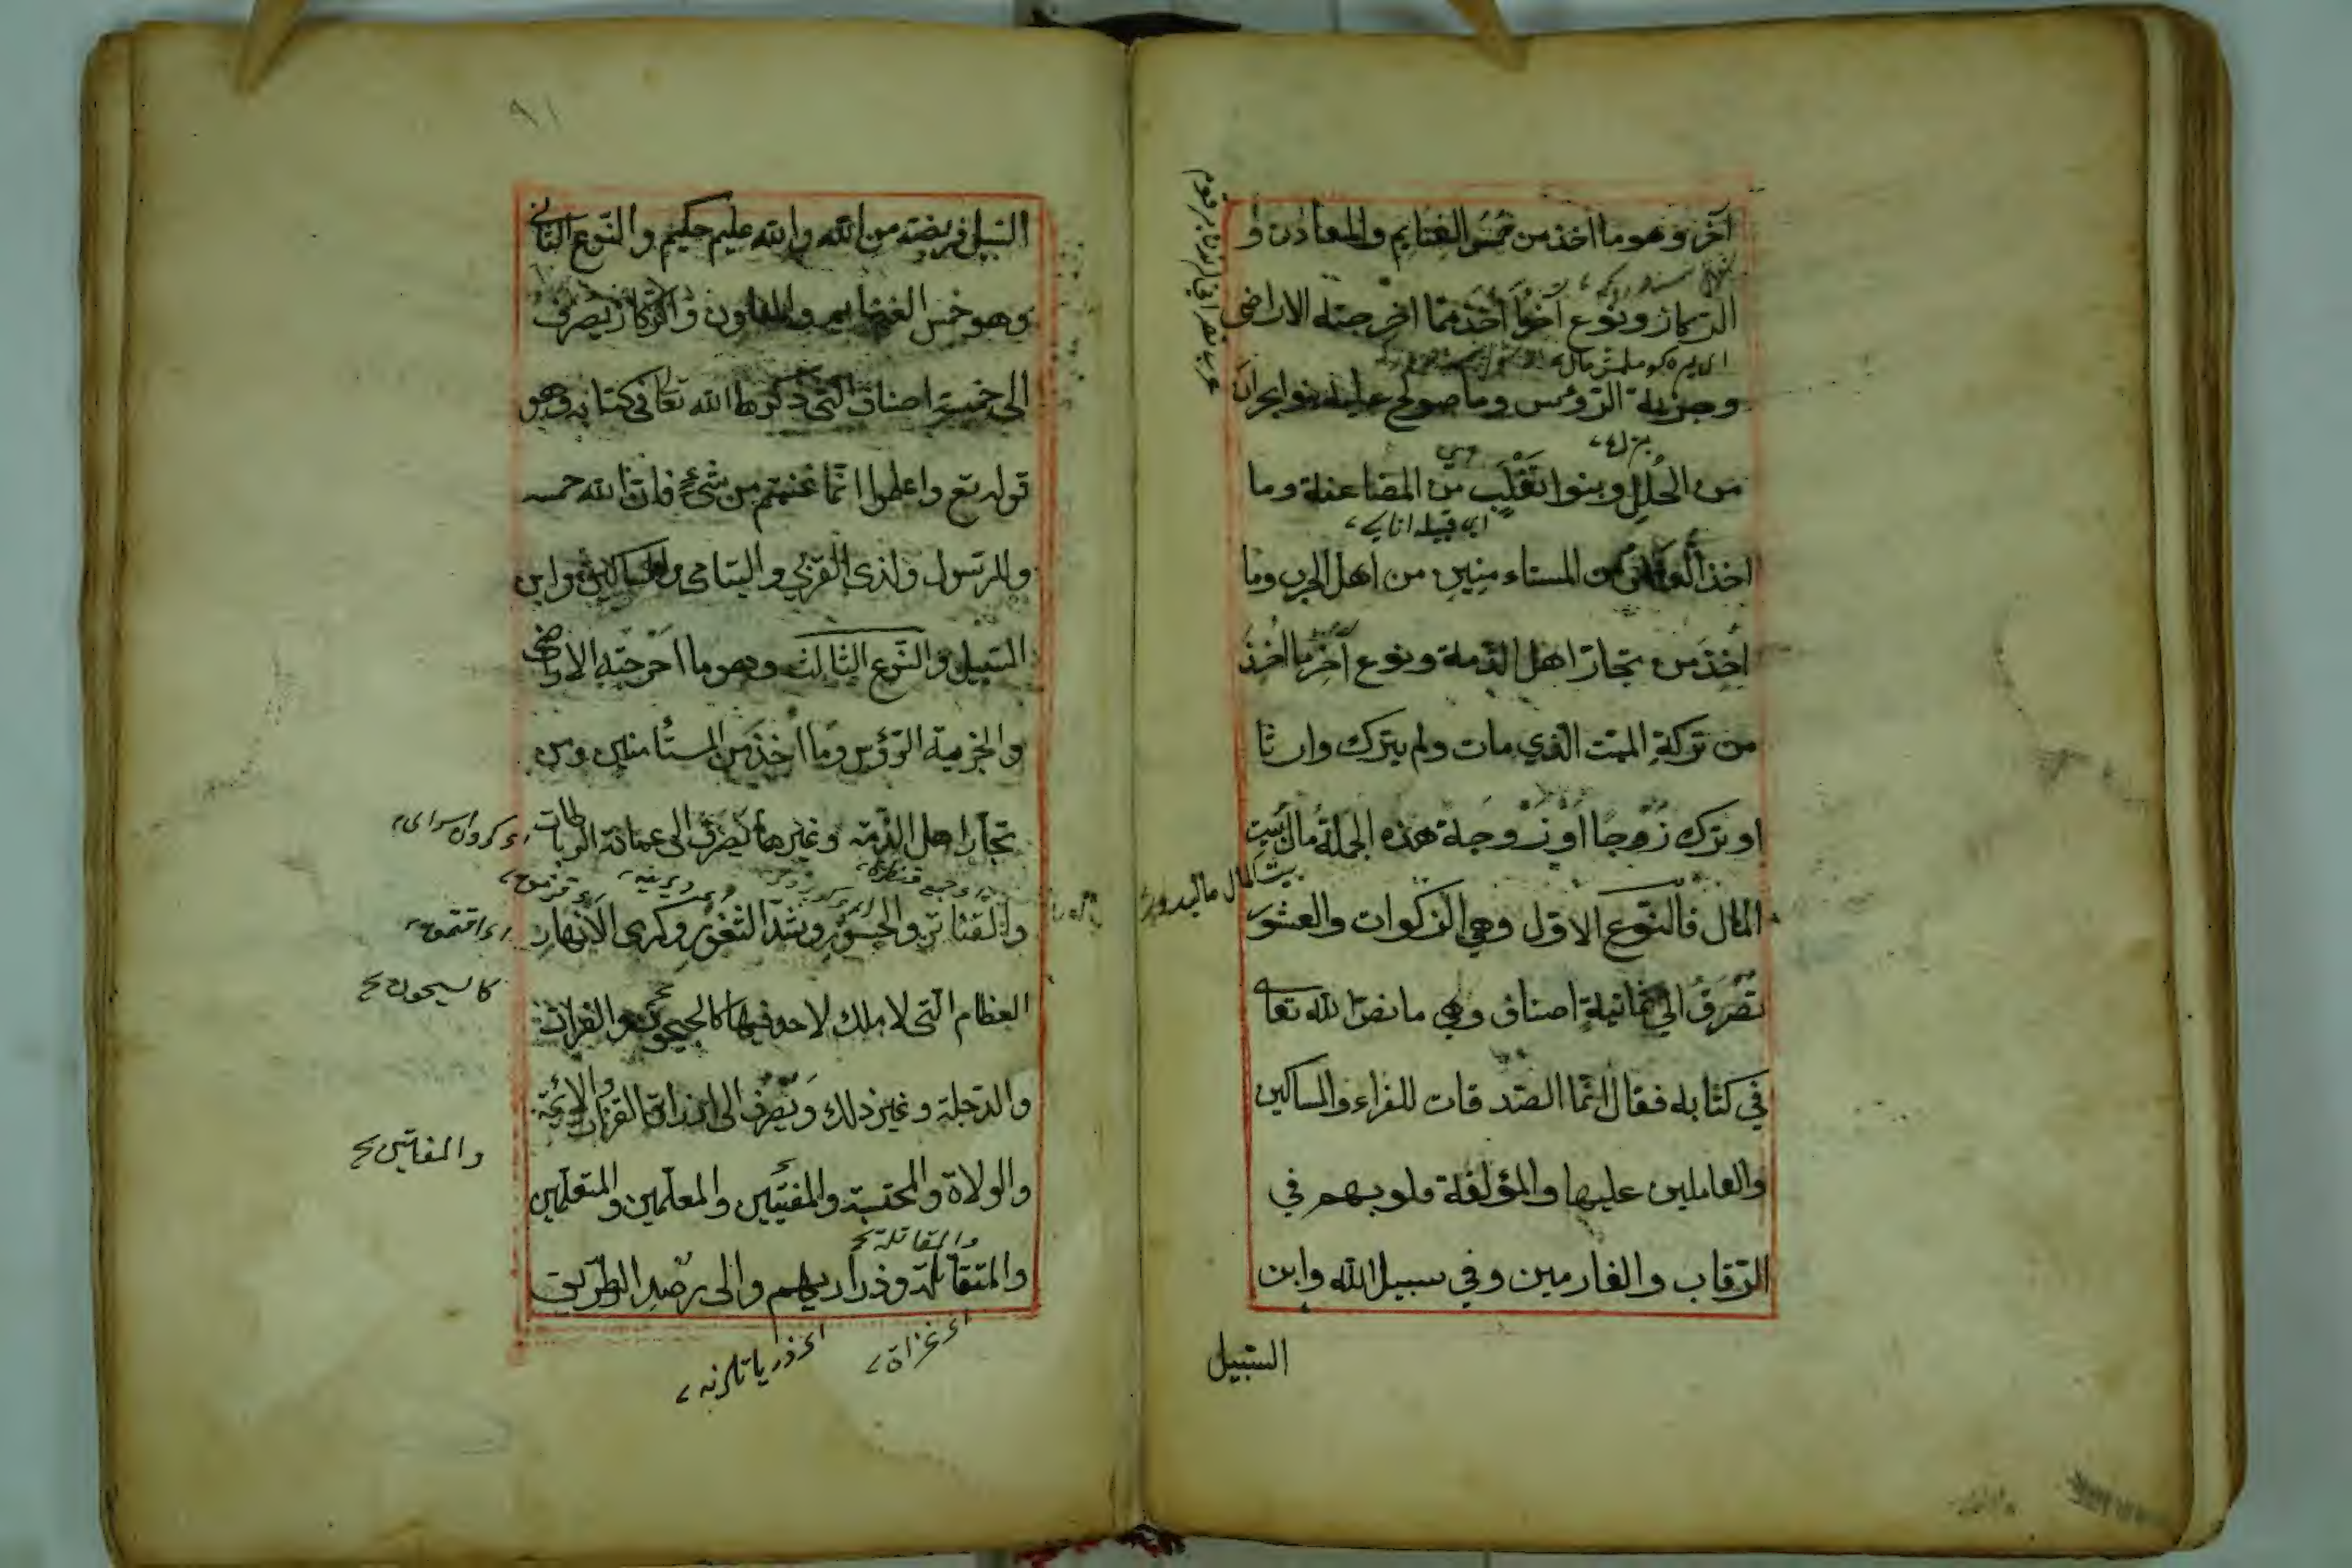 آخر وهو ما اخذ من خمس الغنايم والمعادن و
الركاز ونوع آخر اخذ مما اخرجته الاراضى
وجزية الرؤس وما صولح عليه بنوا نجران
من الحلل وبنوا تغلب من المضاعفة وما
اى قبيله
اخذ العاشر من المستاءمنين من اهل الحرب وما
اخذ من تجار اهل الذمة ونوع آخر ما اخذ
من تركة الميت الذي مات ولم يترك وارثا
او ترك زوجا او زوجة هذه الجملة مال بيت
المال فالنوع الاول وهي الزكوات والعشور
تصرف الى ثمانية اصناف وهي ما نص الله تعالى
في كتابه فقال انما الصدقات للفراء والمساكين
والعاملين عليها والمؤلفة قلوبهم في
الرقاب والغارمين وفي سبيل الله وابن
السبيل
٩١
السبيل فريضة من الله والله عليم حكيم والنوع الثانى
وهو خمس الغنايم والمعادن والركاز يصرف
الى خمسة اصناف التى ذكرها الله تعا فى كتابه وهو
قوله تع واعلموا انما غنمتم من شئ فان لله خمسه
وللرسول ولذى القربى واليتامى والمساكين وابن
السبيل والنوع الثالث وهو ما اخرجته الاراضى
والجزية الرؤس وما اخذ من المستأمنين ومن
تجار اهل الذمة وغيرها يصرف الى عمارة الرباطات
والقناتر والجسور وسد الثغور وكرى الانهار
كا لسيحون
العظام التى لا ملك لاحد فيها كالجيحون والفرات
والدجلة وغير ذلك ويصرف الى ارزاق القضات والائمة
والمفتين
والولاة والمحتسبة والمفتيين والمعلمين والمتعلمين
والمقاتلة
والمتقاتلة وذراريهم والى رصد الطريق
اى غزاة